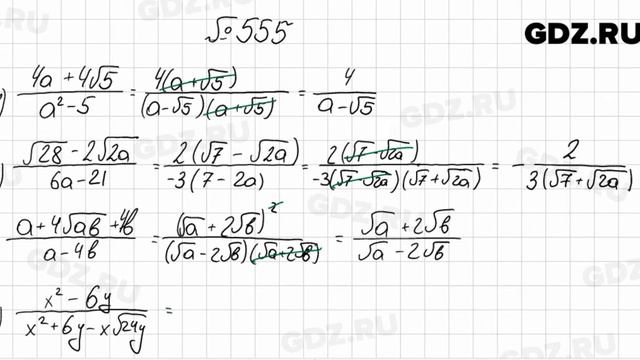 №555
GDZ.RU
) (4a + 4√5)/(a² - 5) = (4(a+√5))/((a-√5)(a+√5)) = 4/(a-√5)
) (√28 - 2√2a)/(6a - 21) = (2(√7 - √2a))/(-3(7 - 2a)) = (2(√7 - √2a))/(-3(√7 - √2a)(√7 + √2a)) = - 2/(3(√7 + √2a))
(a + 4√ab + 4b)/(a - 4b) = (√a + 2√b)²/((√a - 2√b)(√a + 2√b)) = (√a + 2√b)/(√a - 2√b)
) (x² - 6y)/(x² + 6y - x√24y) =